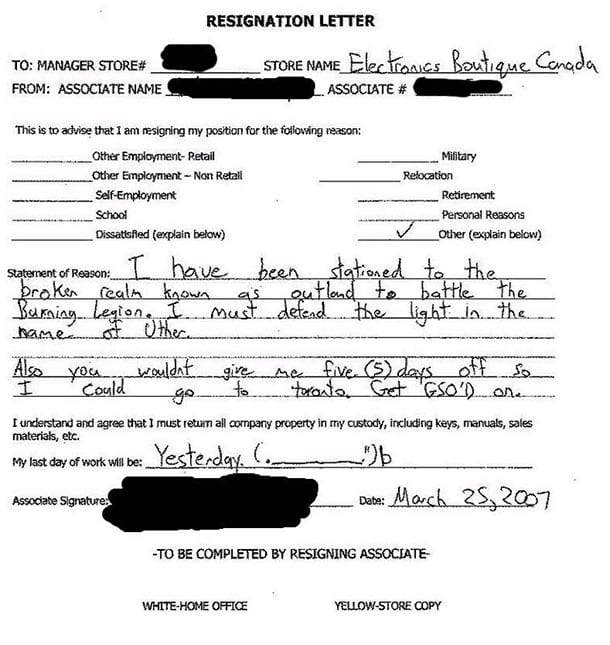 RESIGNATION LETTER
TO: MANAGER STORE# STORE NAME Electronics Boutique Canada
FROM: ASSOCIATE NAME ASSOCIATE #
This is to advise that I am resigning my position for the following reason:
Other Employment- Retail Military
Other Employment – Non Retail Relocation
Self-Employment Retirement
School Personal Reasons
Dissatisfied (explain below) ✓ Other (explain below)
Statement of Reason: I have been stationed to the
broken realm known as outland to battle the
Burning Legion. I must defend the light in the
name of Uther.
Also you wouldnt give me five (5) days off so
I could go to toronto. Get GSO'D on.
I understand and agree that I must return all company property in my custody, including keys, manuals, sales
materials, etc.
My last day of work will be: Yesterday. (.______.")b
Associate Signature: Date: March 25, 2007
-TO BE COMPLETED BY RESIGNING ASSOCIATE-
WHITE-HOME OFFICE YELLOW-STORE COPY